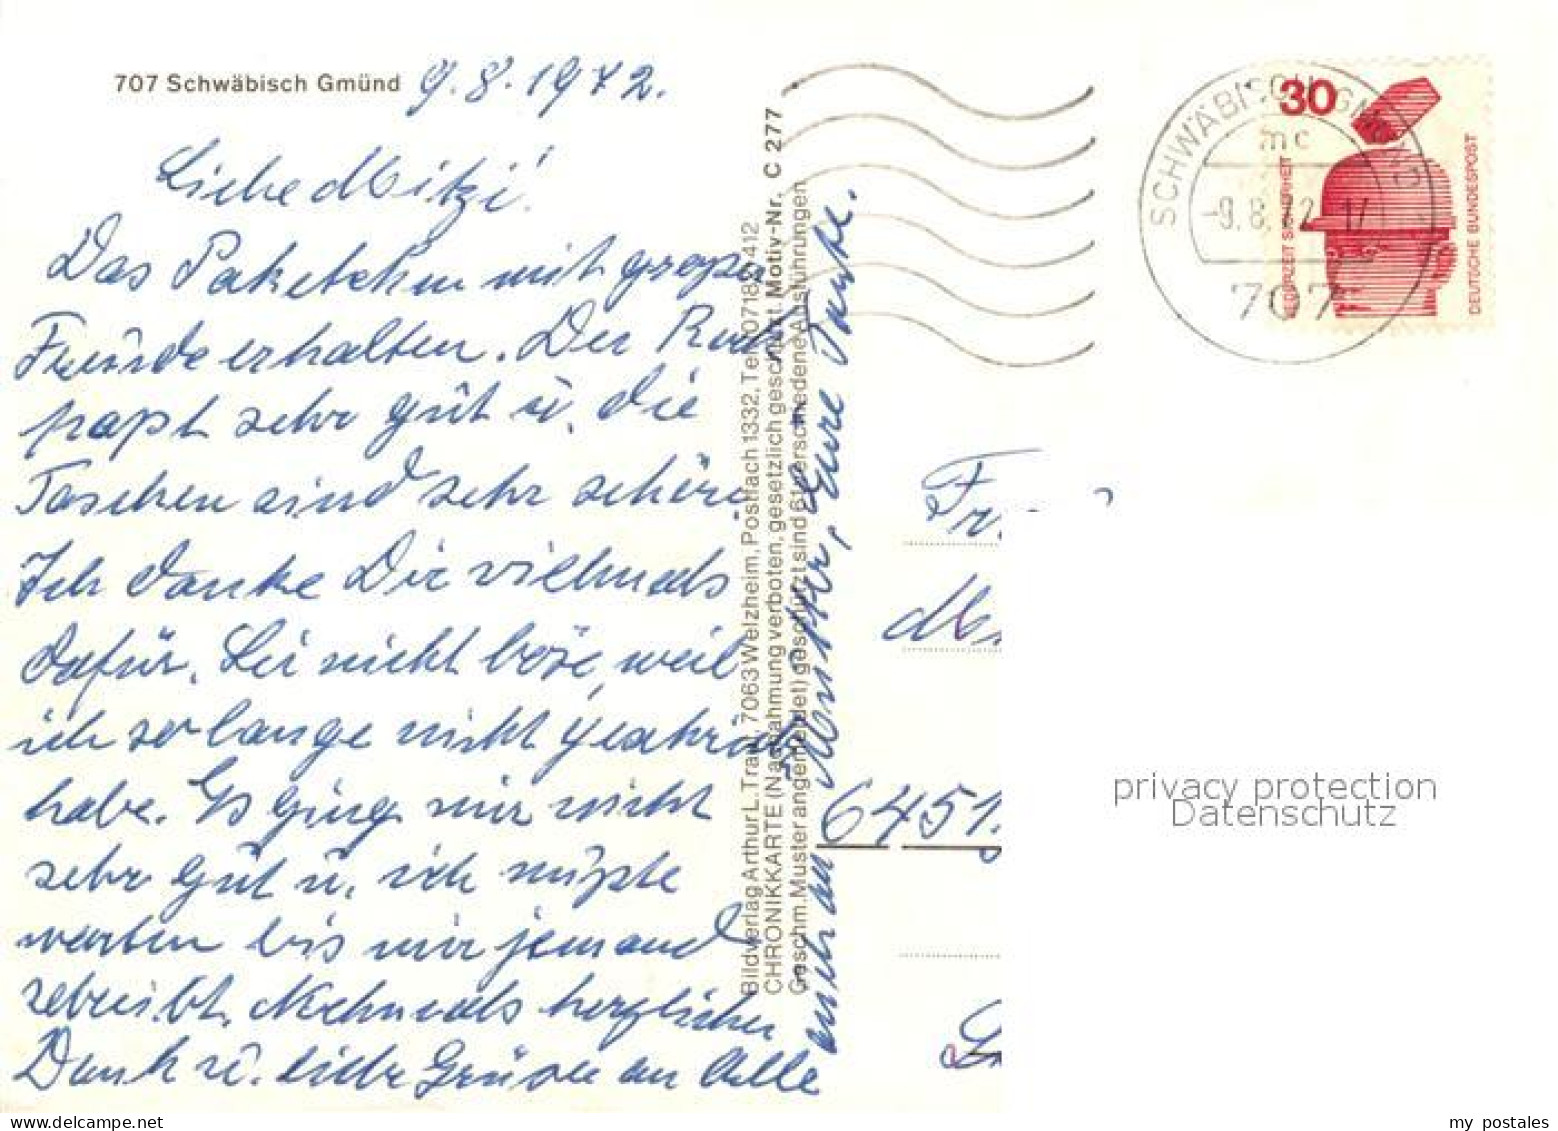 707 Schwäbisch Gmünd 9.8.1972.
Liebe Mitzi!
Das Paketchen mit großer
Freude erhalten. Der Rock
paßt sehr gut u. die
Taschen sind sehr schön
Ich danke Dir vielmals
dafür. Sei nicht böse, weil
ich so lange nicht geschrieb
habe. Es ging mir nicht
sehr gut u. ich mußte
warten bis mir jemand
schreibt. Nochmals herzlichen
Dank u. liebe Grüße an Alle
auch an Mutter, Eure Tante.
Bildverlag Arthur L. Traul, 7063 Welzheim, Postfach 1332, Tel. 07182-412
CHRONIKKARTE (Nachahmung verboten, gesetzlich geschützt. Motiv-Nr. C 277
Geschm. Muster angemeldet) geschützt sind 61 verschiedene Ausführungen
SCHWÄBISCH GMÜND
mc
-9.8.72-17
707
30
JEDERZEIT SICHERHEIT
DEUTSCHE BUNDESPOST
6451.
privacy protection
Datenschutz
my postales